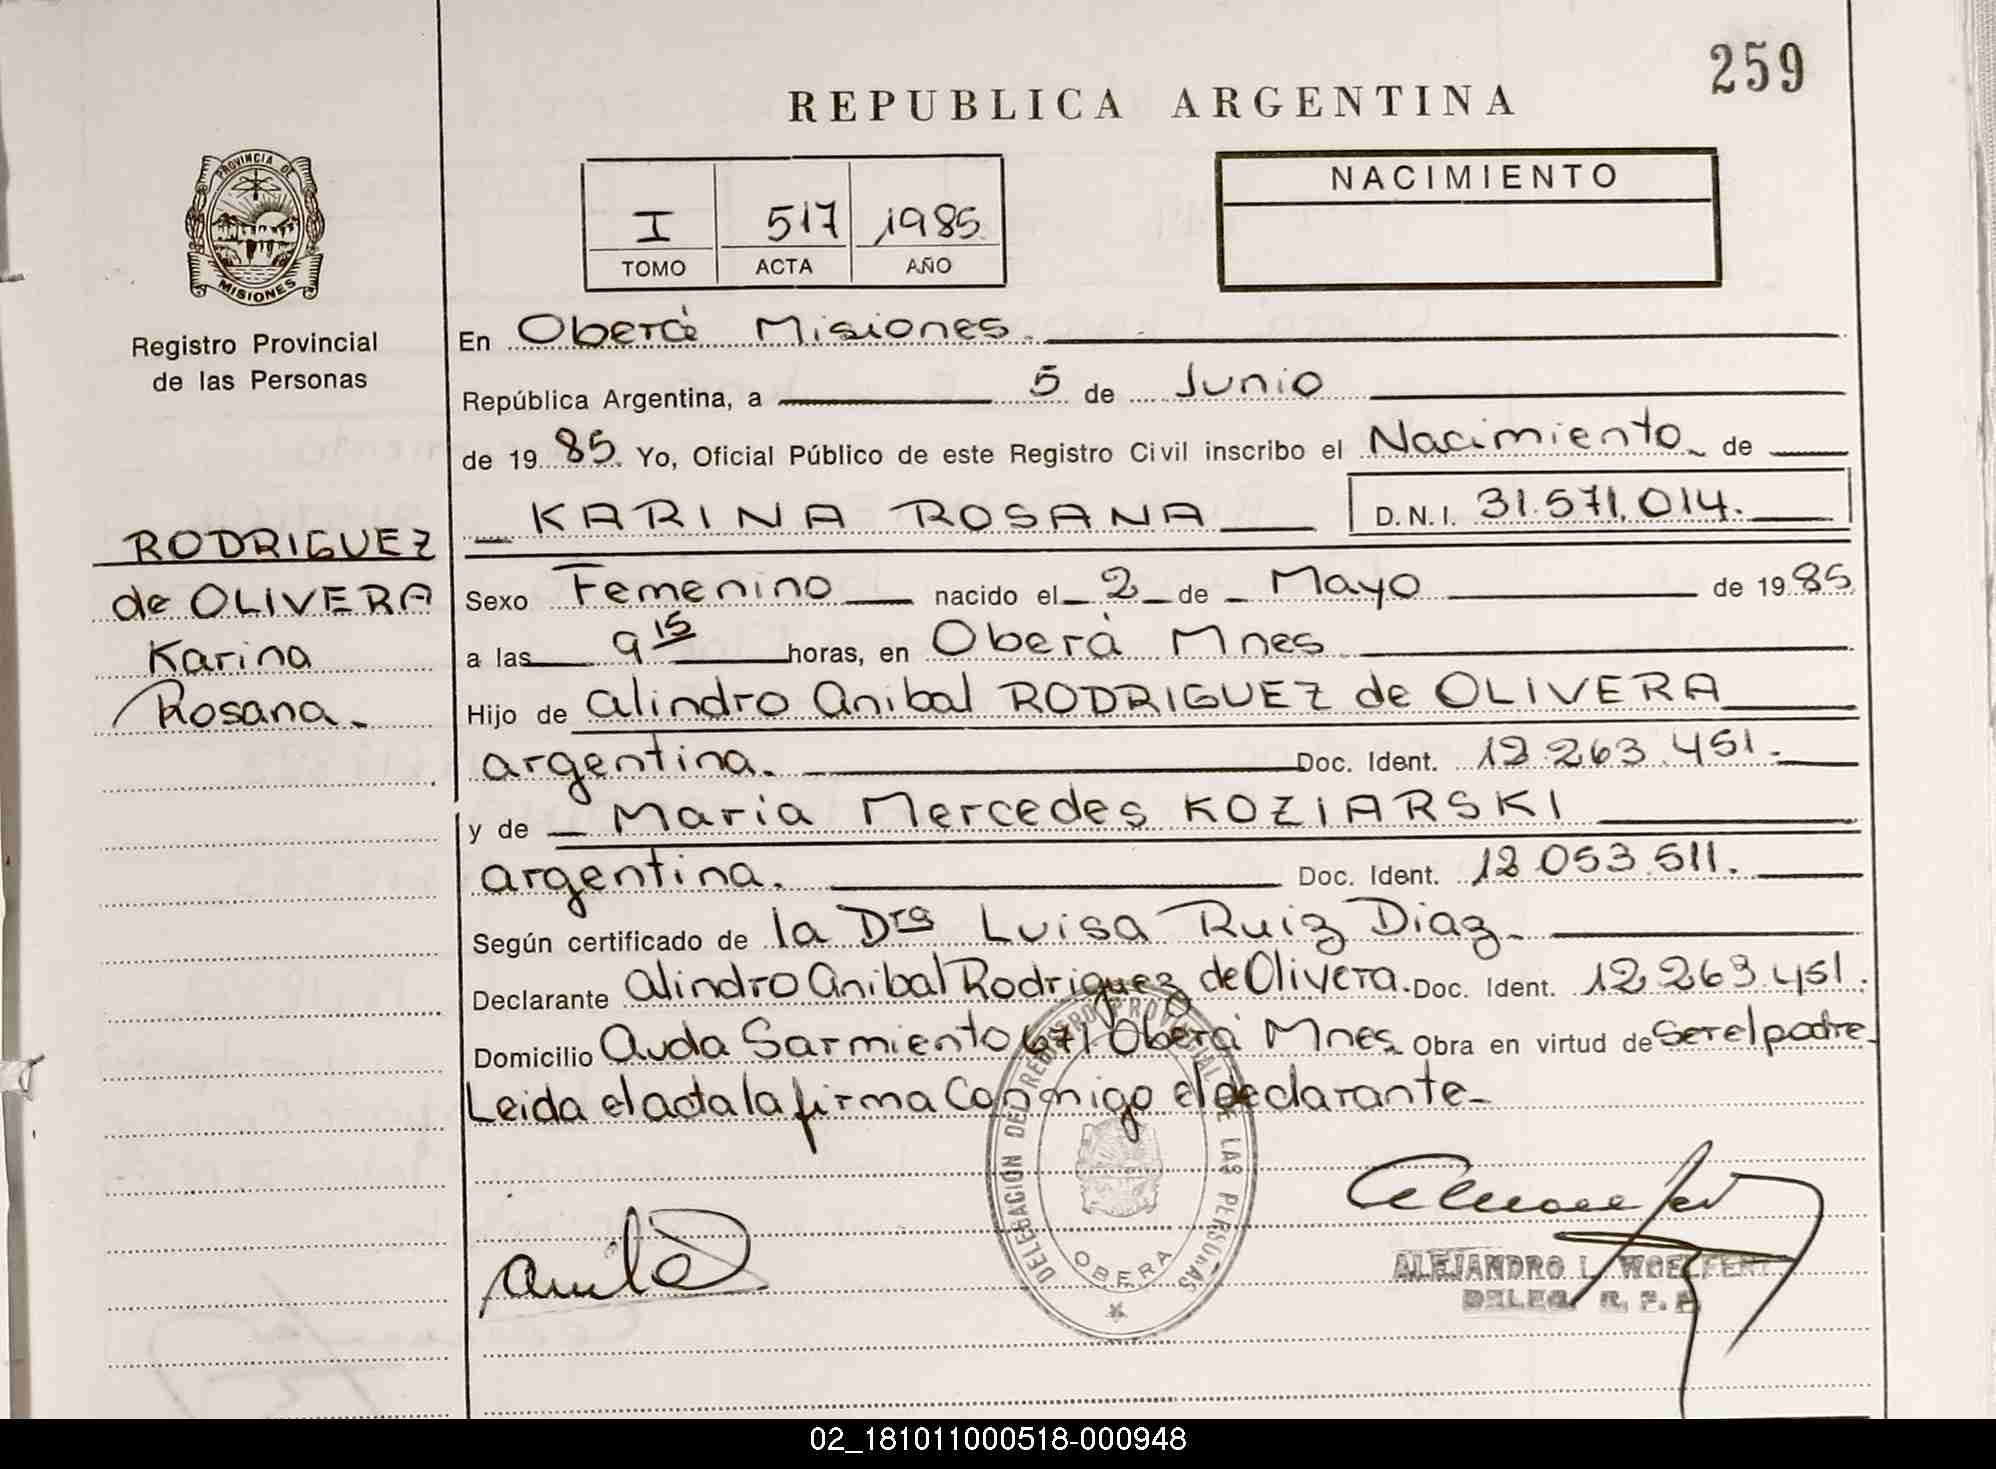 259
REPUBLICA ARGENTINA
PROVINCIA DE
MISIONES
Registro Provincial
de las Personas
I 517 1985
TOMO ACTA AÑO
NACIMIENTO
En Oberá Misiones.
República Argentina, a 5 de Junio
de 19 85. Yo, Oficial Público de este Registro Civil inscribo el Nacimiento de
KARINA ROSANA D.N.I. 31.571.014.
RODRIGUEZ
de OLIVERA
Karina
Rosana.
Sexo Femenino nacido el 2 de Mayo de 19 85
a las 9 15 horas, en Oberá Mnes
Hijo de Alindro Anibal RODRIGUEZ de OLIVERA
argentina. Doc. Ident. 12.263.451.
y de Maria Mercedes KOZIARSKI
argentina. Doc. Ident. 12.053.511.
Según certificado de la Dra Luisa Ruiz Diaz
Declarante Alindro Anibal Rodriguez de Olivera. Doc. Ident. 12.263.451.
Domicilio Avda Sarmiento 671 Oberá Mnes. Obra en virtud de Ser el padre
Leida el acta la firma Conmigo el declarante
DELEGACIÓN DEL REGISTRO PROVINCIAL DE LAS PERSONAS
OBERA
ALEJANDRO L. WOELFERT
DELEG. R. P. P.
02_181011000518-000948